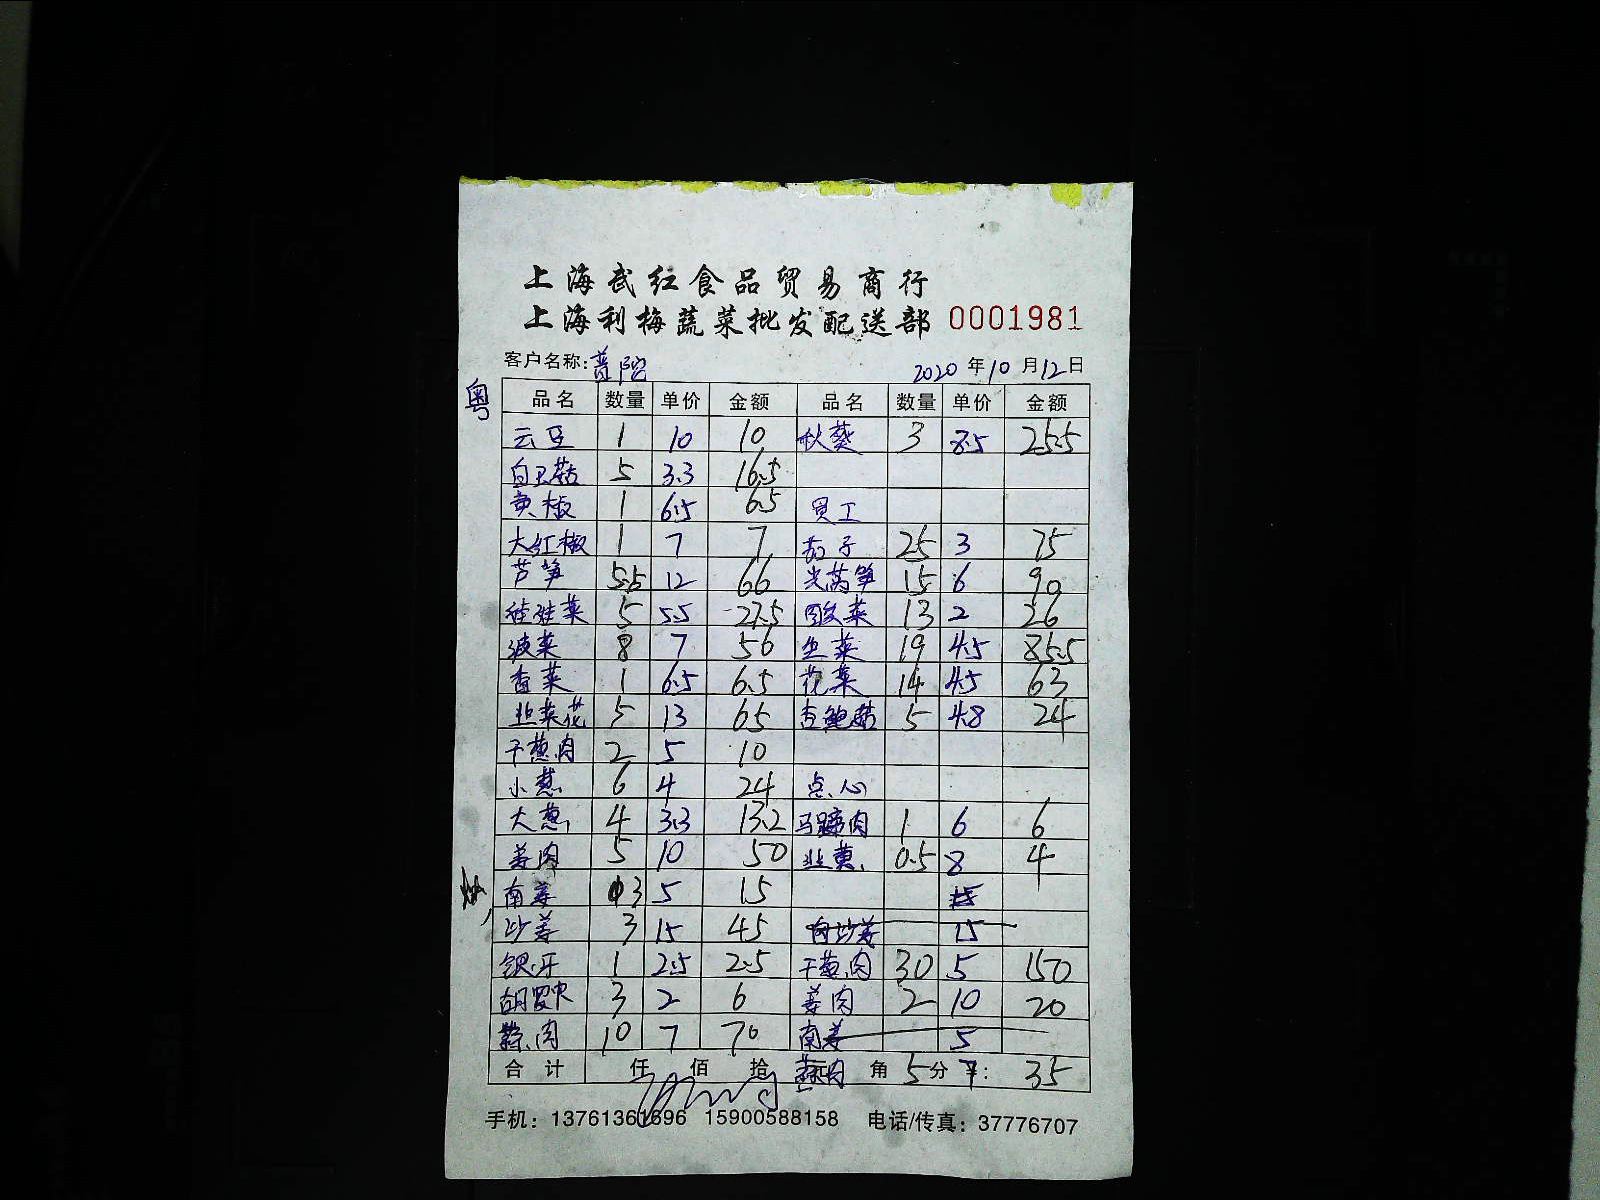 上海武红食品贸易商行
上海利梅蔬菜批发配送部 0001981
客户名称:普陀 2020年10月12日
粤
品名 数量 单价 金额 品名 数量 单价 金额
云豆 1 10 10 秋葵 3 8.5 25.5
白玉菇 5 3.3 16.5
黄椒 1 6.5 6.5 员工
大红椒 1 7 7 茄子 25 3 75
芦笋 5.5 12 66 光莴笋 15 6 90
娃娃菜 5 5.5 27.5 酸菜 13 2 26
菠菜 8 7 56 生菜 19 4.5 85.5
香菜 1 6.5 6.5 花菜 14 4.5 63
韭菜花 5 13 65 杏鲍菇 5 4.8 24
干葱肉 2 5 10
小葱 6 4 24 点心
大葱 4 3.3 13.2 马蹄肉 1 6 6
姜肉 5 10 50 韭黄 0.5 8 4
南姜 3 5 15
沙姜 3 15 45 沙姜 15
银牙 1 2.5 2.5 干葱肉 30 5 150
胡罗卜 3 2 6 姜肉 2 10 20
蒜肉 10 7 70 南姜 5
合计 仟 佰 拾 蒜肉 角 5 分 7: 35
手机：13761361696 15900588158 电话/传真：37776707